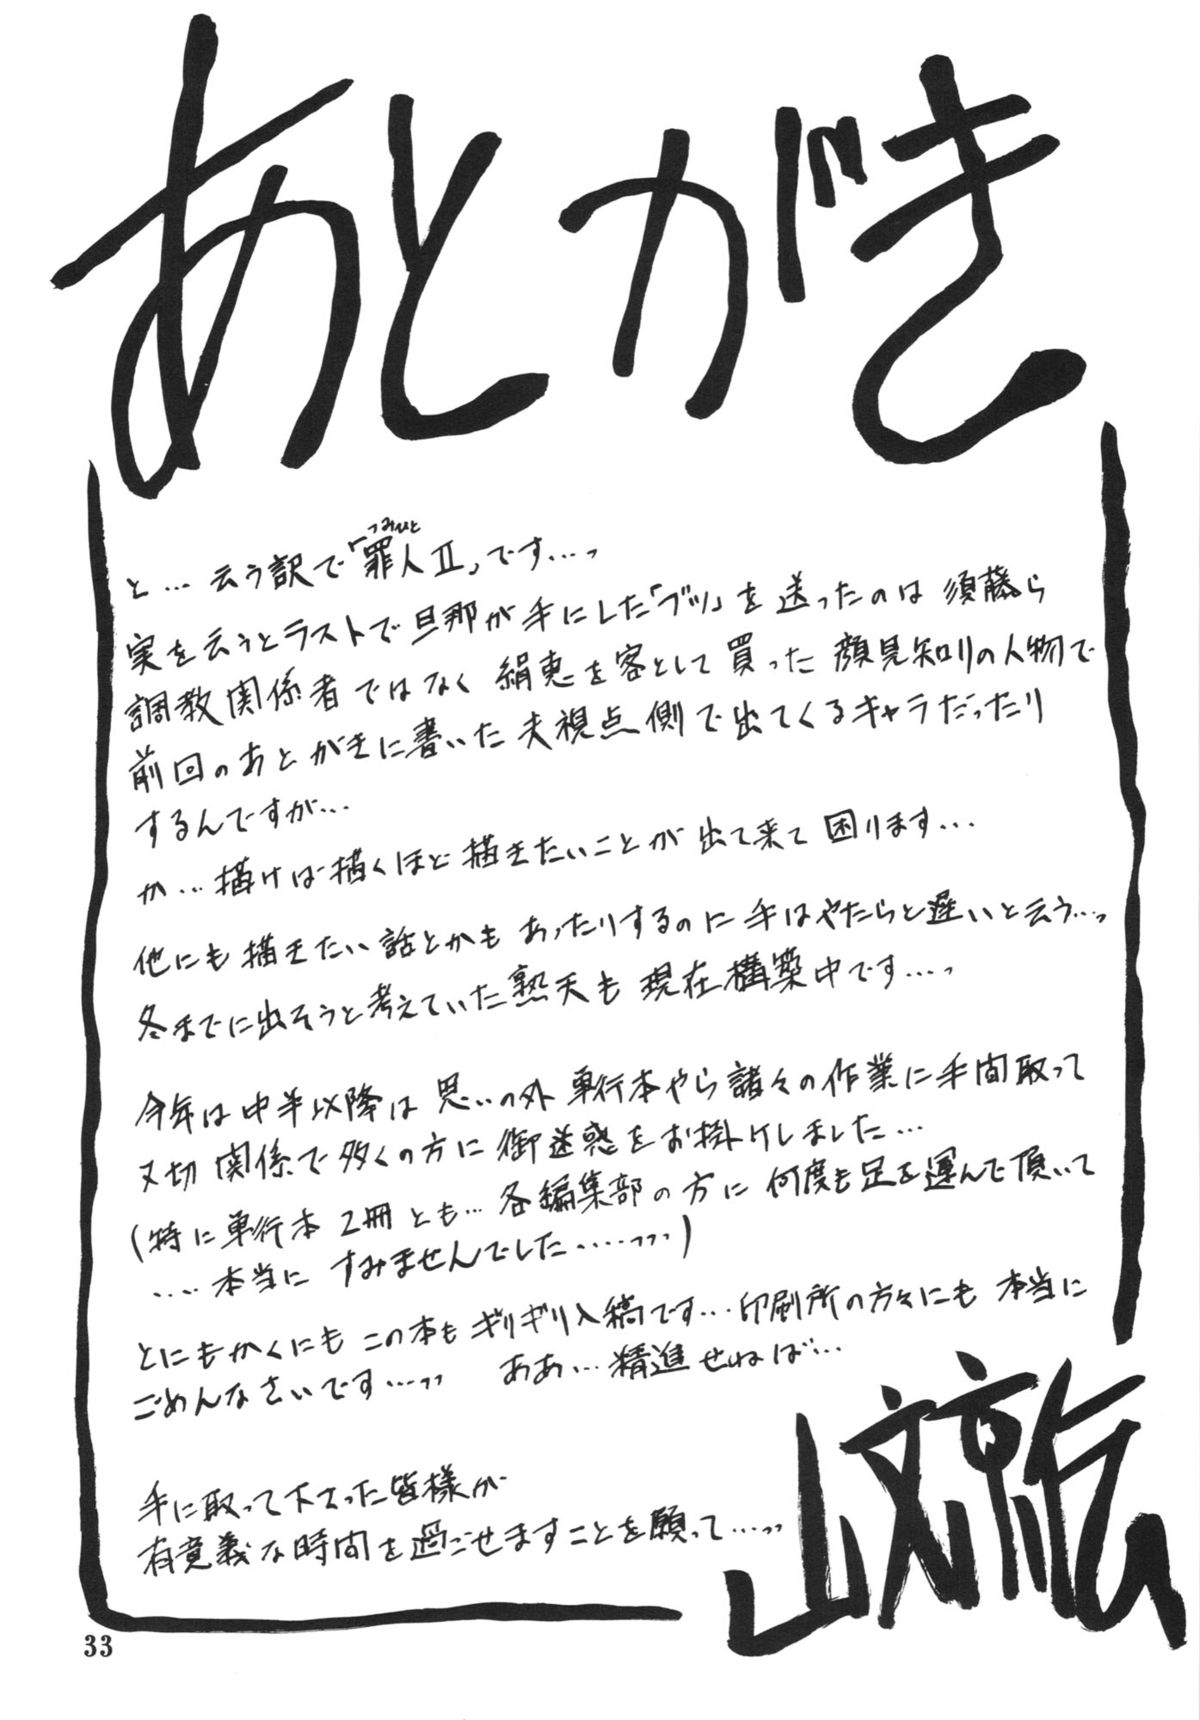 あとがき
と… 云う訳で「罪人Ⅱ」です…っ
つみひと
実を云うとラストで旦那が手にした「ブツ」を送ったのは須藤ら
調教関係者ではなく絹恵を客として買った顔見知りの人物で
前回のあとがきに書いた夫視点側で出てくるキャラだったり
するんですが…
か…描けば描くほど描きたいことが出て来て困ります…
他にも描きたい話とかもあったりするのに手はやたらと遅いと云う…っ
冬までに出そうと考えていた熟天も現在構築中です…っ
今年は中半以降は思いの外単行本やら諸々の作業に手間取って
〆切関係で多くの方に御迷惑をお掛けしました…
(特に単行本2冊とも…各編集部の方に何度も足を運んで頂いて
‥‥本当にすみませんでした……っっっ)
とにもかくにもこの本もギリギリ入稿です…印刷所の方々にも本当に
ごめんなさいです…っっ ああ…精進せねば…
手に取って下さった皆様が
有意義な時間を過ごせますことを願って…っっ
山文京伝
33